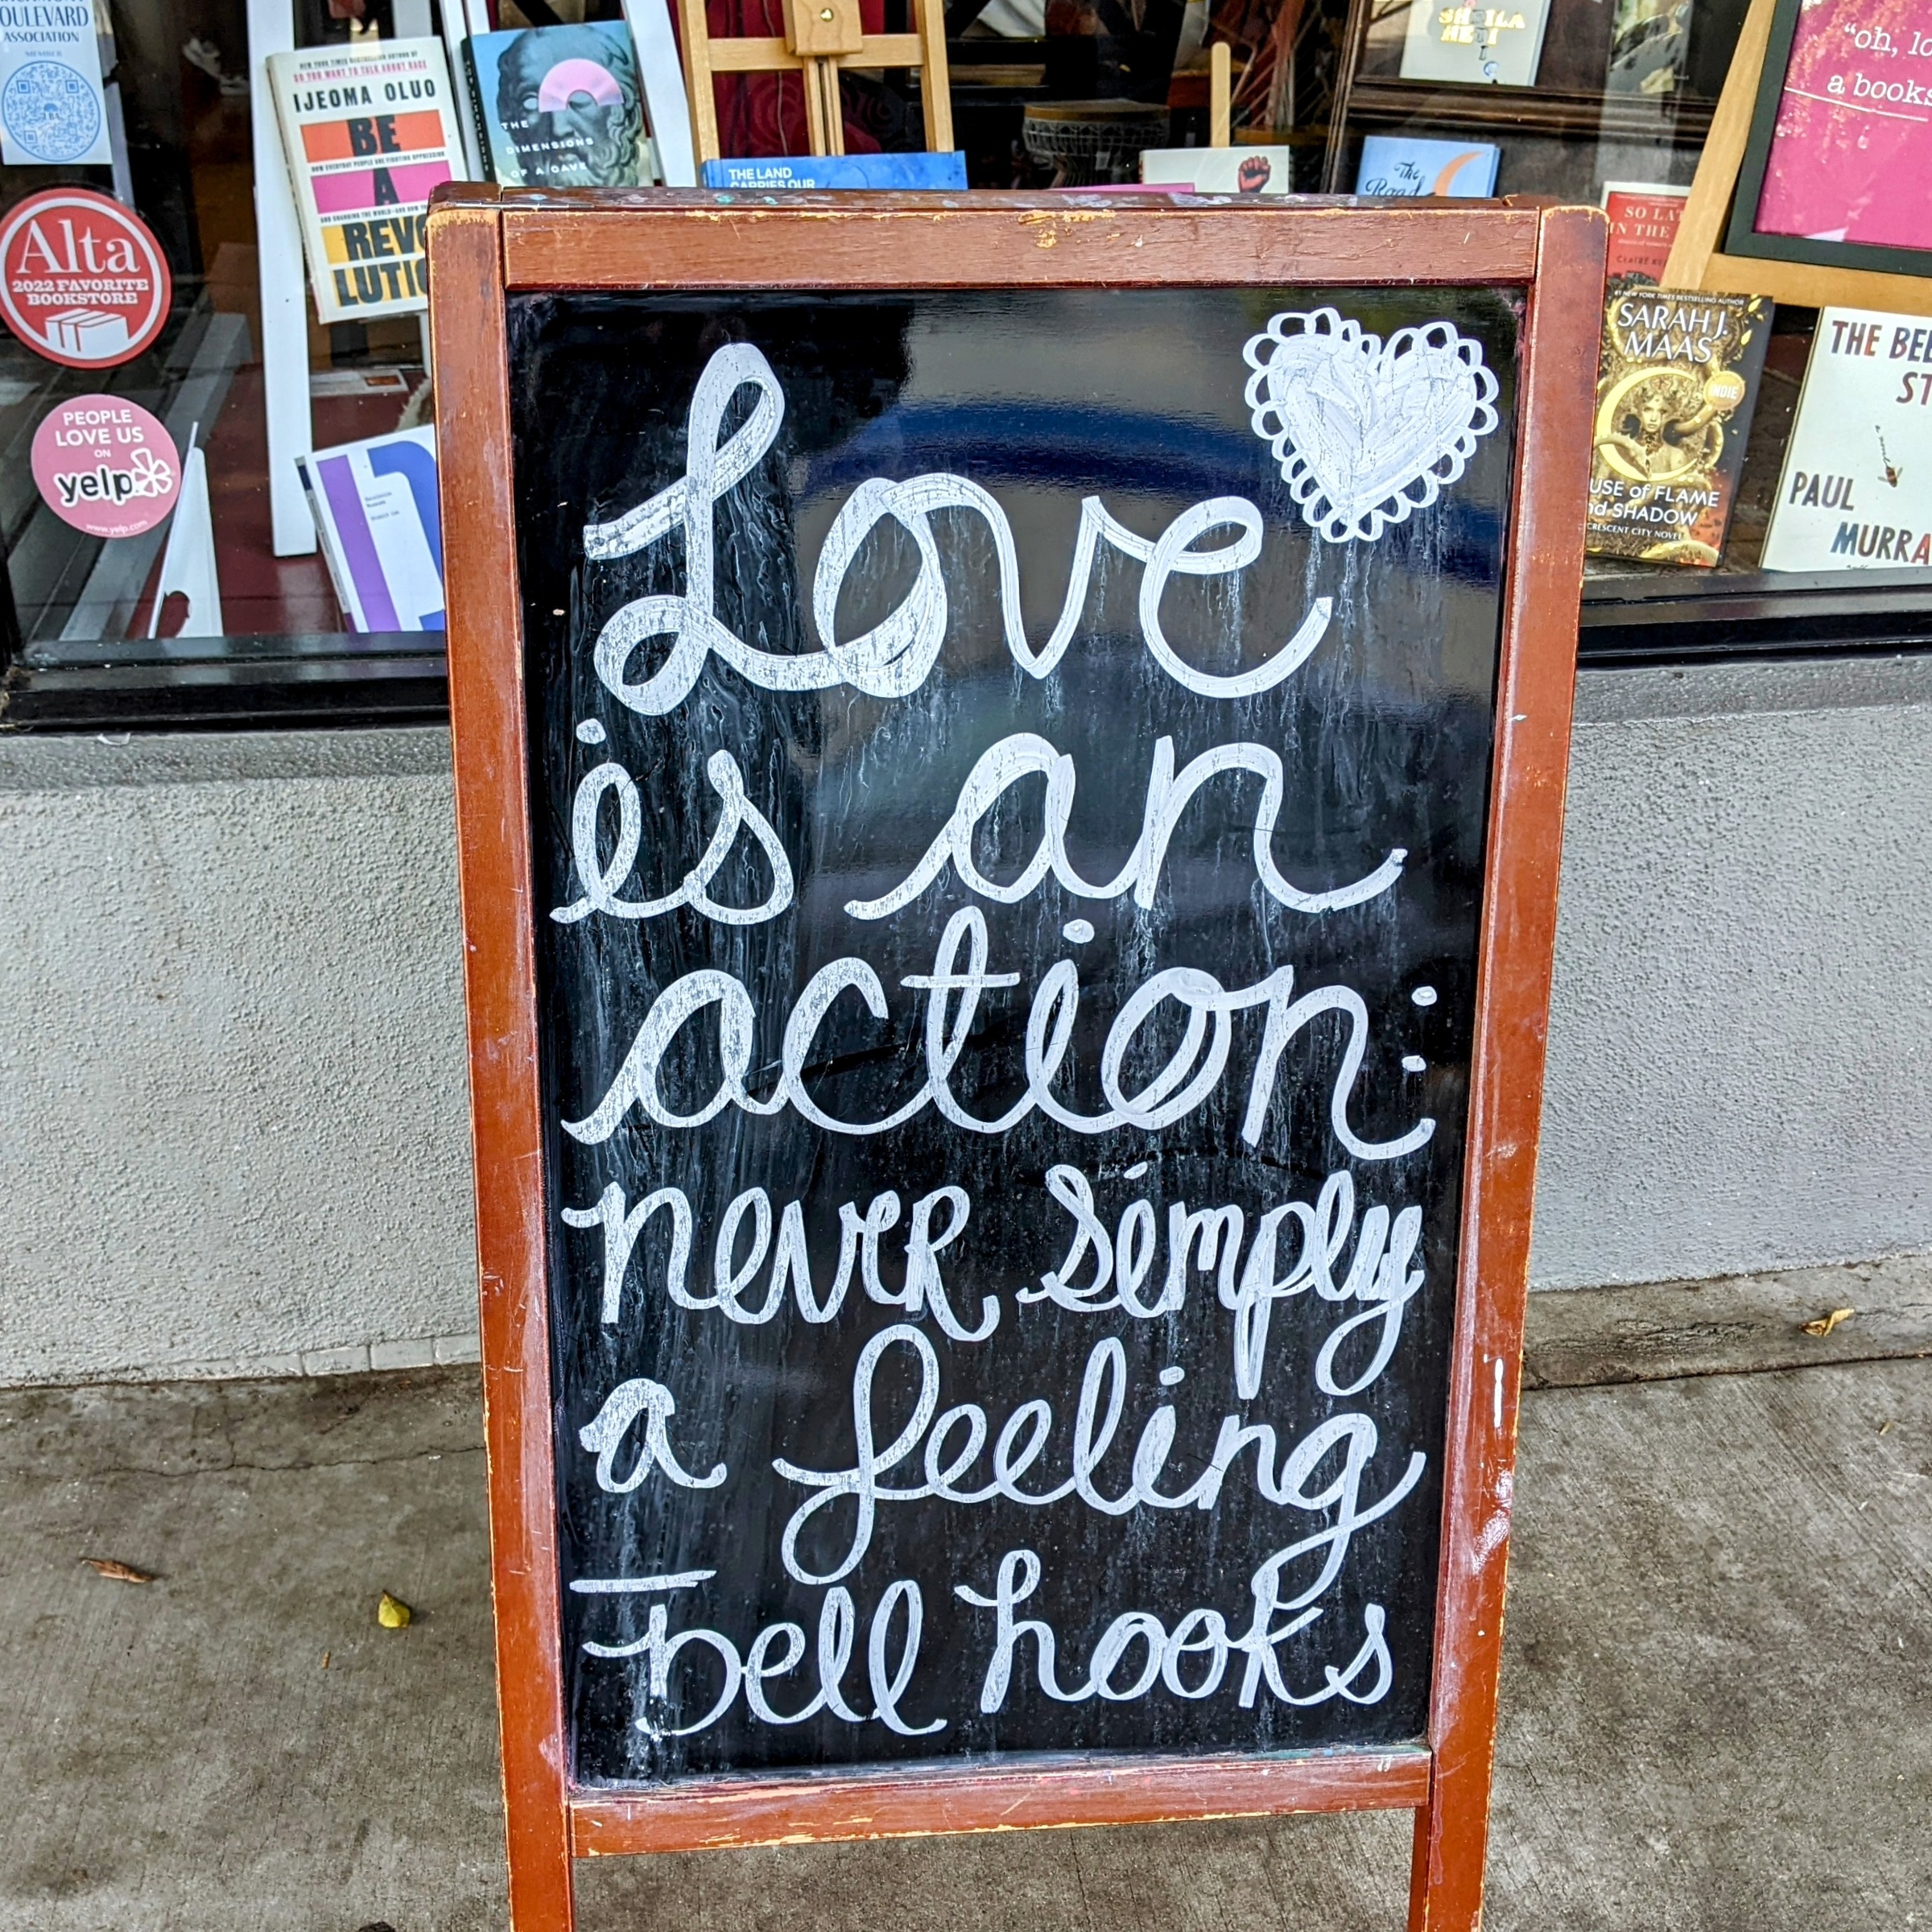 OULEVARD
ASSOCIATION
MEMBER
Alta
2022 FAVORITE
BOOKSTORE
PEOPLE
LOVE US
ON
yelp
www.yelp.com
NEW YORK TIMES BESTSELLING AUTHOR OF
SO YOU WANT TO TALK ABOUT RACE
IJEOMA OLUO
BE
HOW EVERYDAY PEOPLE ARE FIGHTING OPPRESSION
A
REVO
LUTIO
THE
DIMENSIONS
OF A CAVE
THE LAND
CARRIES OUR
SHEILA
HETI
The
Road
"oh, lo
a books
SO LAT
IN THE
CLAIRE KE
#1 NEW YORK TIMES BESTSELLING AUTHOR
SARAH J.
MAAS
INDIE
USE of FLAME
nd SHADOW
CRESCENT CITY NOVEL
THE BEE
ST
PAUL
MURRA
Love
is an
action:
never simply
a feeling
— bell hooks